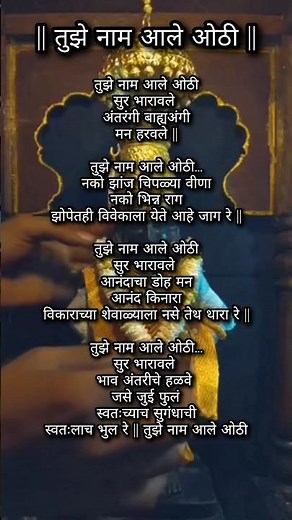 || तुझे नाम आले ओठी ||
तुझे नाम आले ओठी
सुर भारावले
अंतरंगी बाह्यअंगी
मन हरवले ||
तुझे नाम आले ओठी...
नको झांज चिपळ्या वीणा
नको भिन्न राग
झोपेतही विवेकाला येते आहे जाग रे ||
तुझे नाम आले ओठी
सुर भारावले
आनंदाचा डोह मन
आनंद किनारा
विकाराच्या शेवाळ्याला नसे तेथ थारा रे ||
तुझे नाम आले ओठी...
सुर भारावले
भाव अंतरीचे हळवे
जसे जुई फुलं
स्वतःच्याच सुगंधाची
स्वतःलाच भुल रे || तुझे नाम आले ओठी